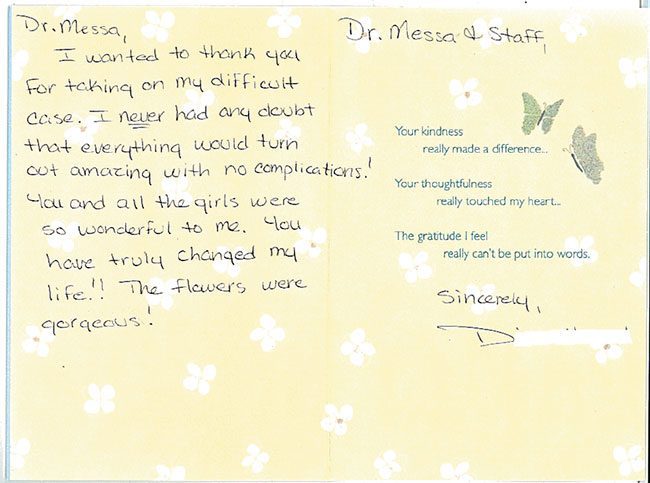 Dr. Messa,
I wanted to thank you
for taking on my difficult
case. I never had any doubt
that everything would turn
out amazing with no complications!
You and all the girls were
so wonderful to me. You
have truly changed my
life!! The flowers were
gorgeous!
Dr. Messa & Staff,
Your kindness
really made a difference...
Your thoughtfulness
really touched my heart...
The gratitude I feel
really can't be put into words.
Sincerely,